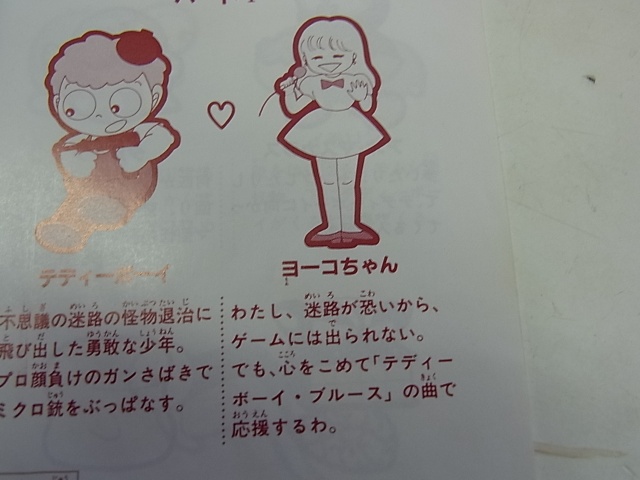 テディーボーイ
不思議の迷路の怪物退治に
飛び出した勇敢な少年。
プロ顔負けのガンさばきで
ミクロ銃をぶっぱなす。
ヨーコちゃん
わたし、迷路が恐いから、
ゲームには出られない。
でも、心をこめて「テディー
ボーイ・ブルース」の曲で
応援するわ。